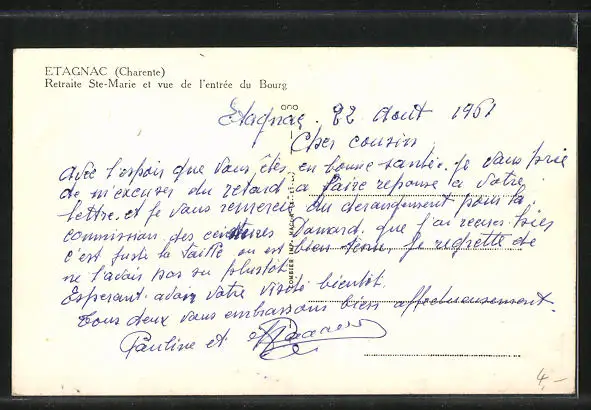 ETAGNAC (Charente)
Retraite Ste-Marie et vue de l'entrée du Bourg
Etagnac. 22 Aout 1961
Cher cousin
avec l'espoir que vous êtes en bonne santée. Je vous prie
de m'excuser du retard a faire reponse a votre
lettre. et Je vous remercie du derangement pour la
commission des ceintures Damard que j'ai recues très
c'est juste la taille on est bien tenu. Je regrette de
ne l'avoir pas su plustôt
Esperant avoir votre visite bientôt.
Tous deux vous embrassons bien affectueusement.
Pauline et
COMBIER IMP. MACON
4,-